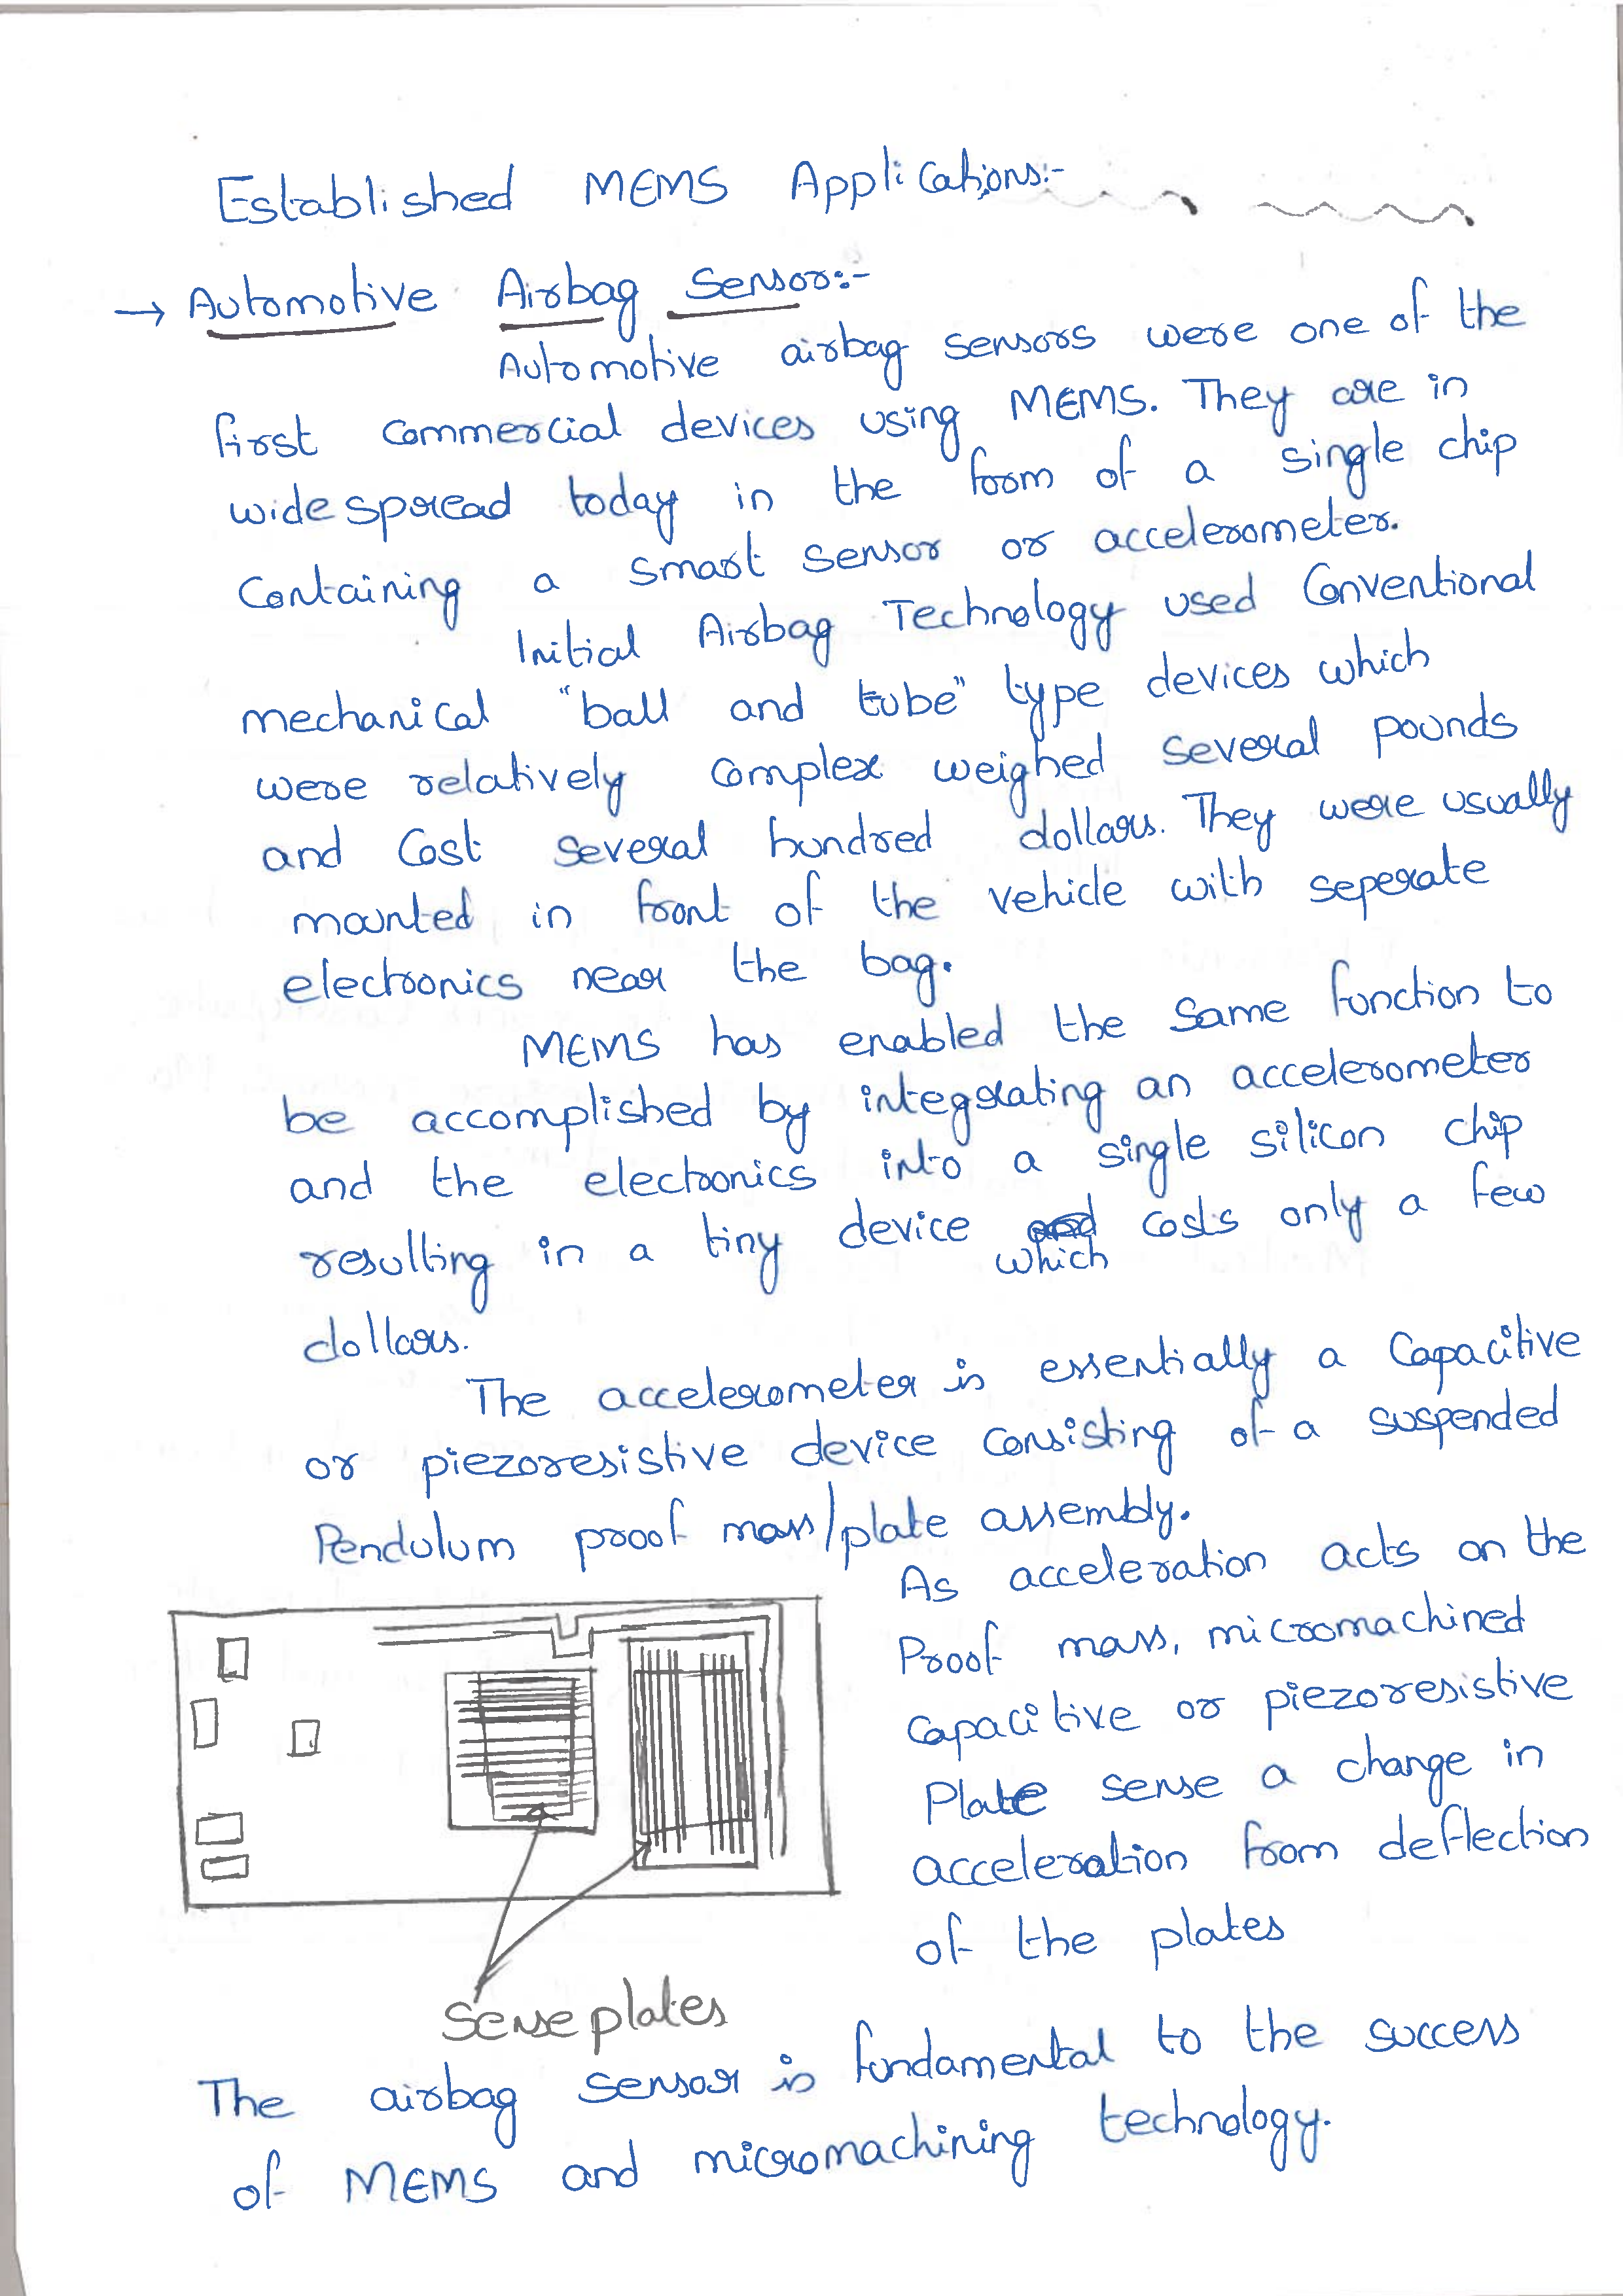 Established MEMS Applications:-
→ Automotive Airbag Sensor:-
Automotive airbag sensors were one of the
first commercial devices using MEMS. They are in
wide spread today in the form of a single chip
Containing a smart sensor or accelerometer.
Initial Airbag Technology used Conventional
mechanical "ball and tube" type devices which
were relatively complex weighed several pounds
and Cost several hundred dollars. They were usually
mounted in front of the vehicle with seperate
electronics near the bag.
MEMS has enabled the same function to
be accomplished by integrating an accelerometer
and the electronics into a single silicon chip
resulting in a tiny device which costs only a few
dollars.
The accelerometer is essentially a Capacitive
or piezoresistive device consisting of a suspended
Pendulum proof mass/plate assembly.
As acceleration acts on the
Proof mass, micromachined
capacitive or piezoresistive
Plate sense a change in
acceleration from deflection
of the plates
Sense plates
The airbag sensor is fundamental to the success
of MEMS and micromachining technology.